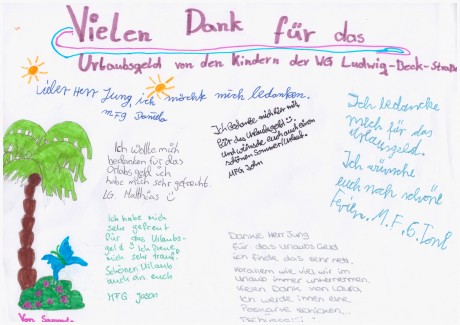 Vielen Dank für das
Urlaubsgeld von den Kindern der WG Ludwig-Deck-Straße
Lieber Herr Jung ich möchte mich bedanken.
MFG Daniela
Ich bedanke mich für mit
für das Urlaubsgeld
und wünsche euch auch einen
schönen Sommer/Urlaub.
MFG John
Ich wollte mich
bedanken für das
Urlabs geld ich
habe mich sehr gefrecht.
LG Matthias
Ich bedancke
mich für das
Urlausgeld.
Ich wünsche
euch noch schöne
Ferien. M.F.G. Toni
Ich habe mich
sehr gefreut
für das Urlaubs-
geld
mich sehr
Schönen Urlaub
auch an euch
MFG Jason
Danke Herr Jung
für das Urlaubs Geld
ich finde das sehr nett.
vorallem wie viel wir im
Urlaub immer unternehmen.
Vielen Dank von Laura,
Ich werde ihnen eine
Postkarte schicken...
Von